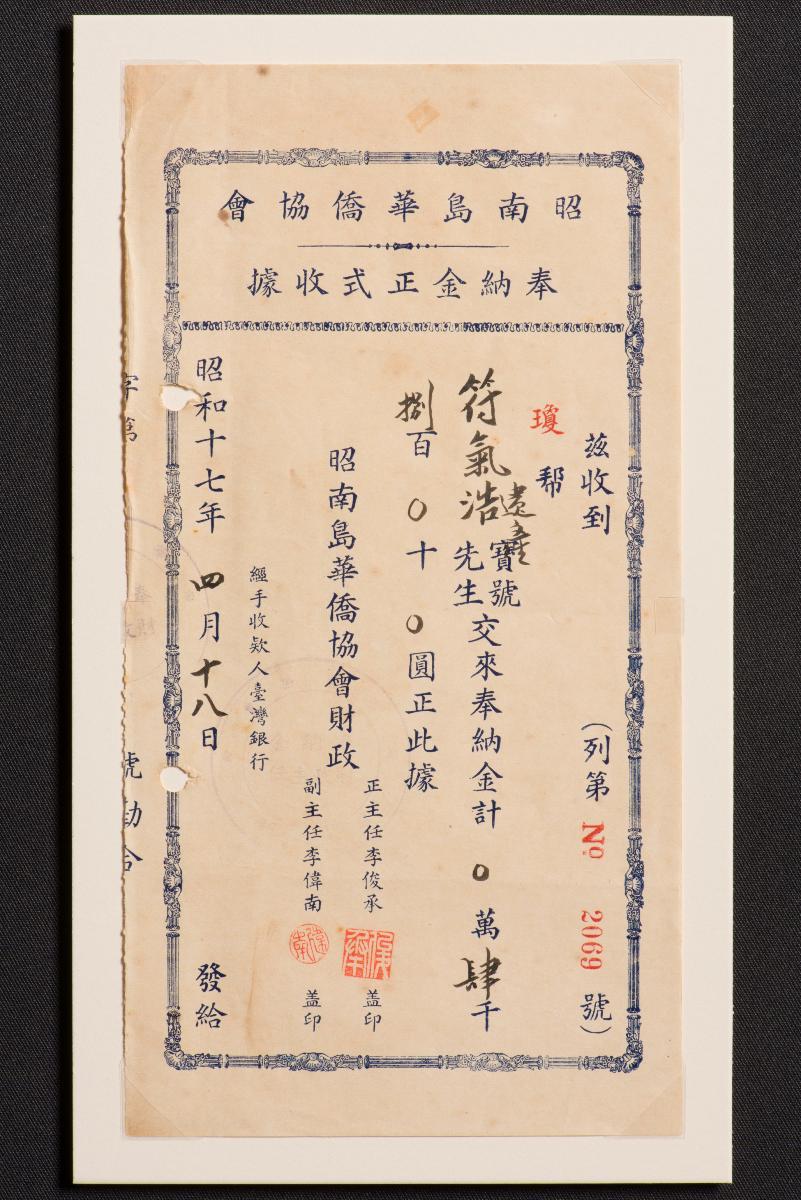 昭南島華僑協會
奉納金正式收據
茲收到
(列第 No 2069 號)
瓊幫
符氣浩
寶號
先生
交來奉納金計 0 萬肆千
捌百 0 十 0 圓正此據
昭南島華僑協會財政
正主任李俊承 盖印
副主任李偉南 盖印
經手收欵人臺灣銀行
昭和十七年四月十八日 發給
字第 號勘合